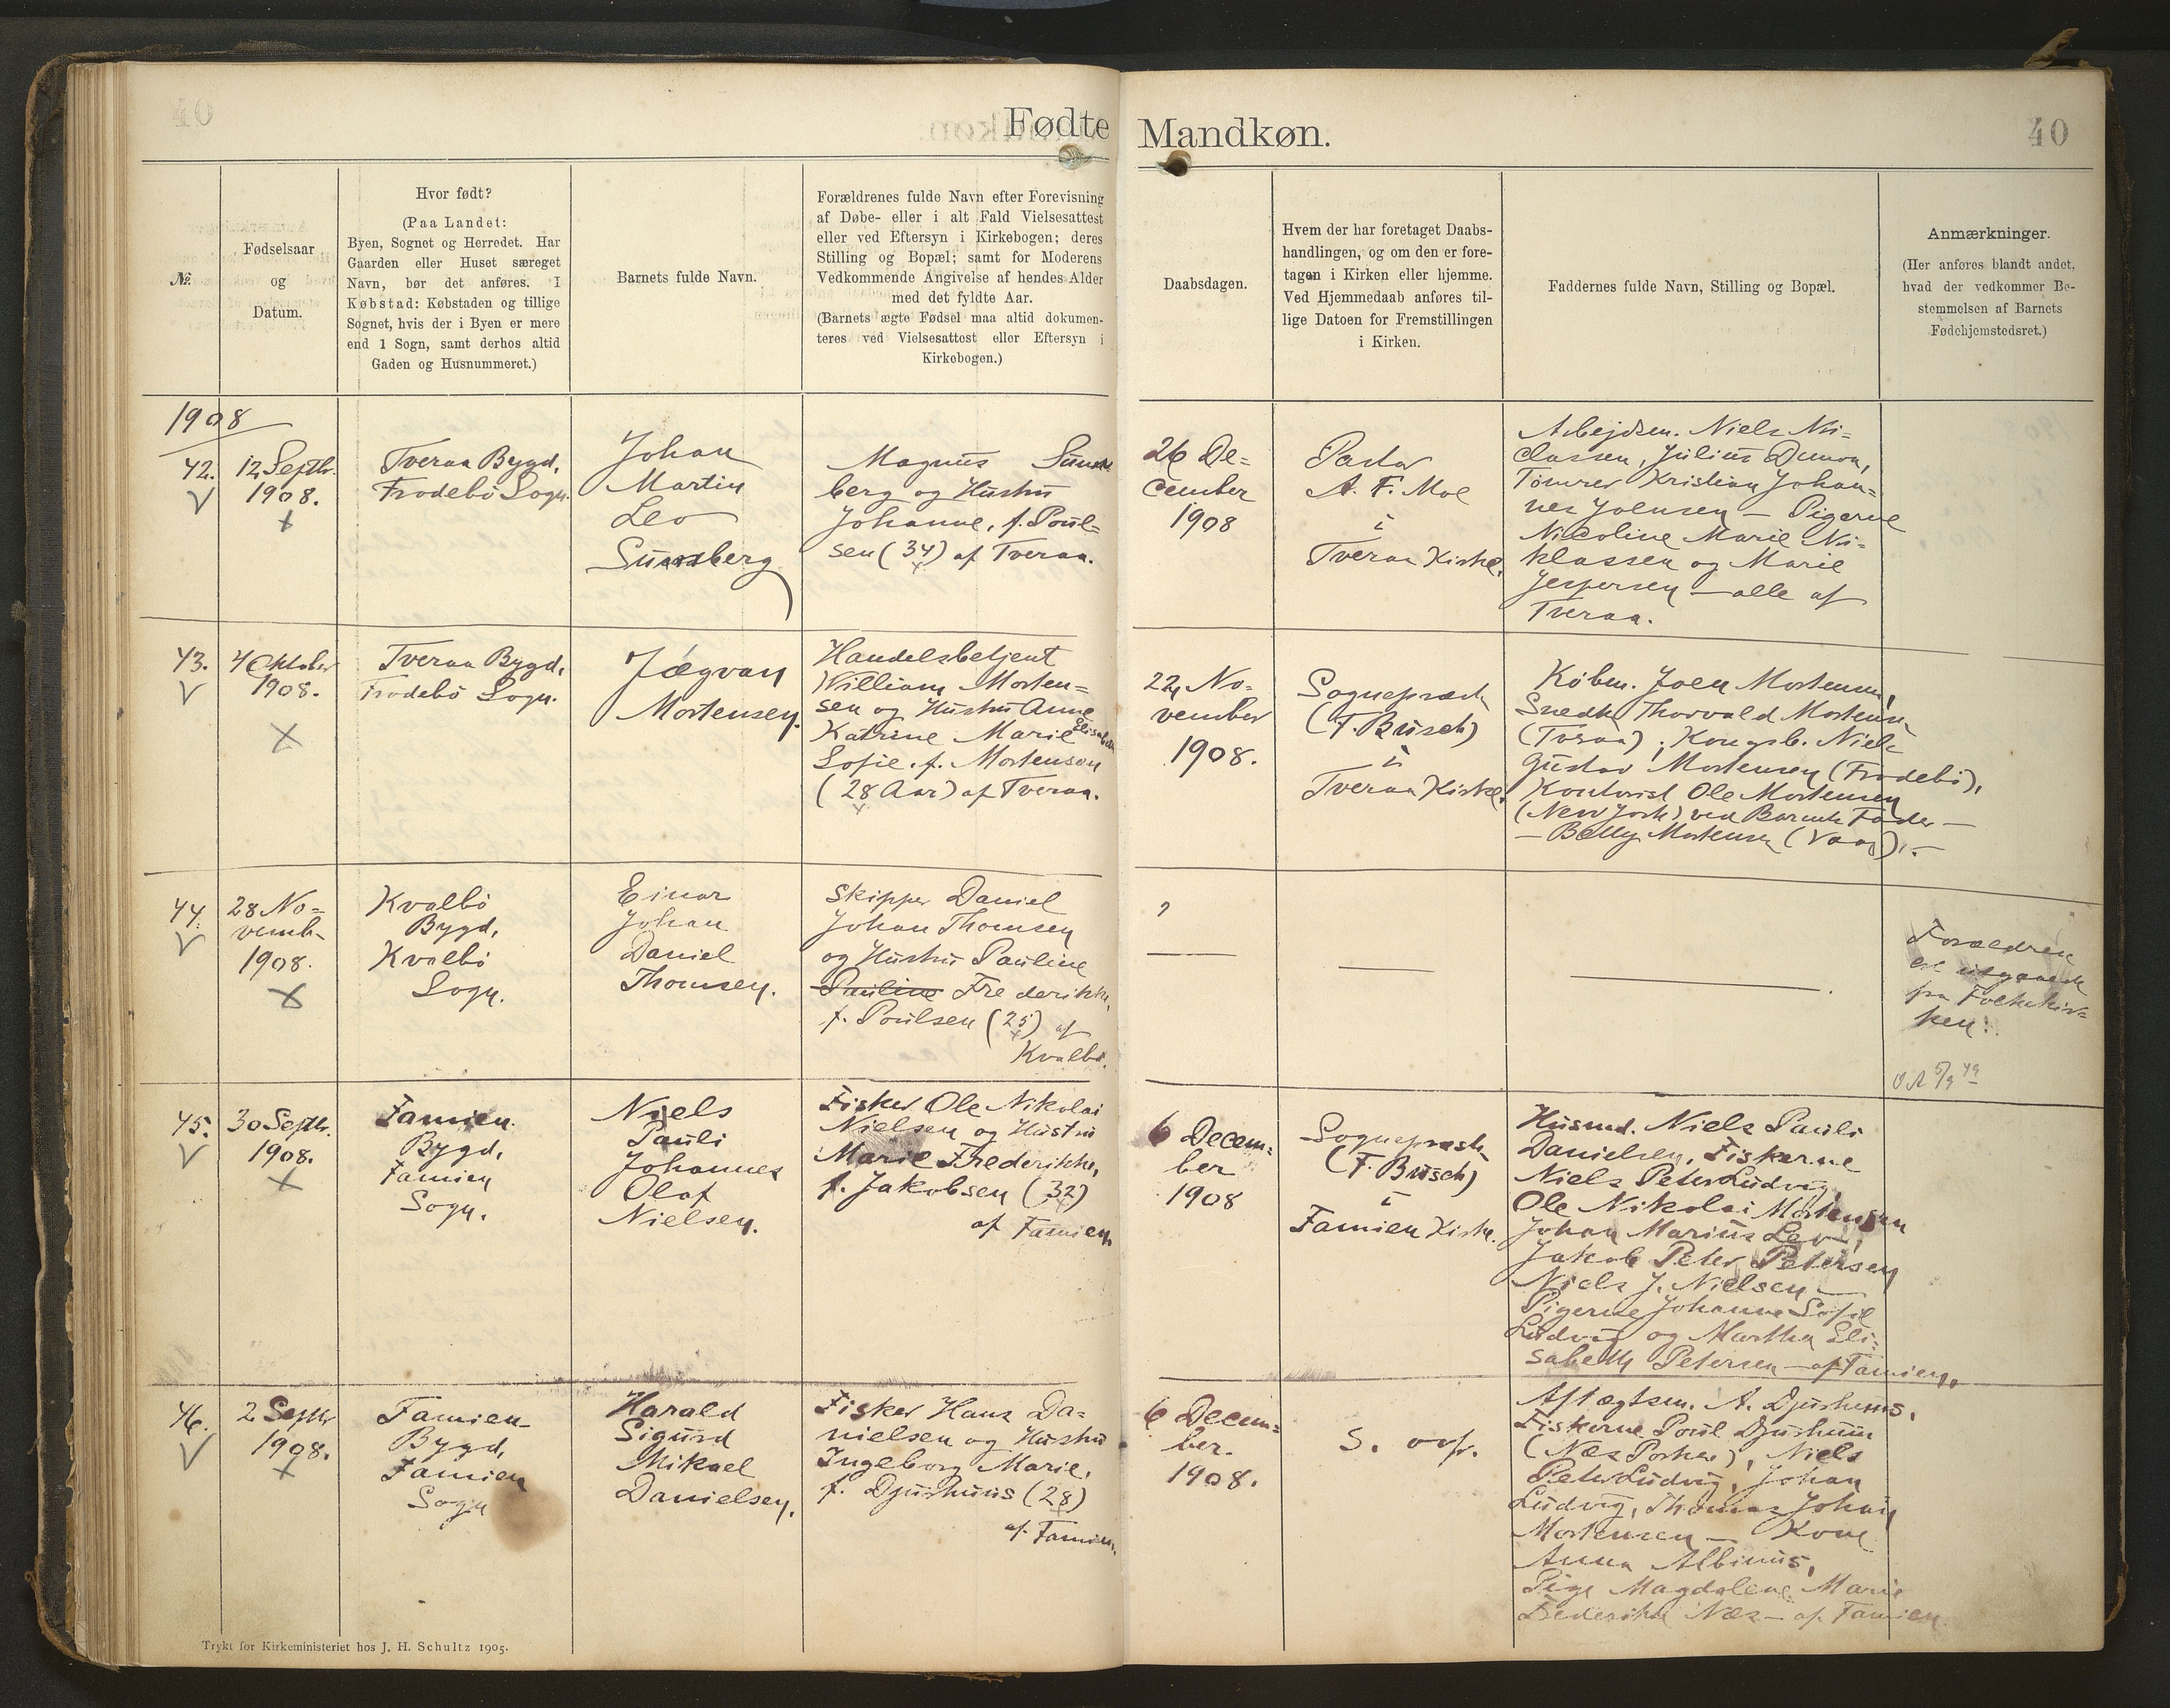 40
Fødte
Mandkøn.
40
№.
Fødselsaar
og
Datum.
Hvor født?
(Paa Landet:
Byen, Sognet og Herredet. Har
Gaarden eller Huset særeget
Navn, bør det anføres. I
Købstad: Købstaden og tillige
Sognet, hvis der i Byen er mere
end 1 Sogn, samt derhos altid
Gaden og Husnummeret.)
Barnets fulde Navn.
Forældrenes fulde Navn efter Forevisning
af Døbe- eller i alt Fald Vielsesattest
eller ved Eftersyn i Kirkebogen; deres
Stilling og Bopæl; samt for Moderens
Vedkommende Angivelse af hendes Alder
med det fyldte Aar.
(Barnets ægte Fødsel maa altid dokumen-
teres ved Vielsesattest eller Eftersyn i
Kirkebogen.)
Daabsdagen.
Hvem der har foretaget Daabs-
handlingen, og om den er fore-
tagen i Kirken eller hjemme.
Ved Hjemmedaab anføres til-
lige Datoen for Fremstillingen
i Kirken.
Faddernes fulde Navn, Stilling og Bopæl.
Anmærkninger.
(Her anføres blandt andet,
hvad der vedkommer Be-
stemmelsen af Barnets
Fødehjemstedsret.)
1908
42.
12 Septbr.
1908.
Tveraa Bygd,
Frodebö Sogn.
Johan
Martin
Leo
Sumberg
Magnus Sum
berg og Hustru
Johanne, f. Poul-
sen (34) af Tveraa.
26 De-
cember
1908
Pastor
A. F. Moe
i
Tveraa Kirke.
Arbejdsm. Niels Ni-
classen, Julius Dimon,
Tömrer Kristian Johan-
nes Joensen — Pigerne
Nicoline Marie Ni-
klassen og Marie
Jespersen — alle af
Tveraa.
43.
4 Oktober
1908.
Tveraa Bygd,
Frodebö Sogn.
Jógvan
Mortensen.
Handelsbetjent
William Morten-
sen og Hustru Anne
Katrine Marie Elisabeth
Sofie, f. Mortensen
(28 Aar) af Tveraa.
22 No-
vember
1908.
Sognepræst
(F. Busch)
i
Tveraa Kirke.
Købm. Joen Mortensen,
Snedk. Thorvald Mortensen
(Tveraa), Kongsb. Niels
Gustav Mortensen (Frodebö),
Kontorist Ole Mortensen
(New York) ved Barnets Fader —
— Betty Mortensen (Vaag). —
44.
28 No-
vemb.
1908.
Kvalbö
Bygd,
Kvalbö
Sogn.
Einar
Johan
Daniel
Thomsen.
Skipper Daniel
Johan Thomsen
og Hustru Pauline
Pauline Frederikke,
f. Poulsen (25) af
Kvalbö.
?
Forældrene
er udgaaede
fra Folkekir-
ken.
5/9 49
45.
30 Septbr.
1908.
Famien
Bygd,
Famien
Sogn.
Niels
Pauli
Johannes
Olaf
Nielsen.
Fisker Ole Nikolai
Nielsen og Hustru
Marie Frederikke,
f. Jakobsen (32)
af Famien
6 Decem-
ber
1908
Sognepræst
(F. Busch)
i
Famien Kirke.
Husmd. Niels Pauli
Danielsen, Fiskerne
Niels Peter Ludvig,
Ole Nikolai Mortensen
Johan Marius Leo,
Jakob Peter Petersen
Niels J. Nielsen —
Pigerne Johanne Sofie
Ludvig og Martha Eli-
sabeth Petersen — af Famien.
46.
2 Septbr
1908.
Famien
Bygd,
Famien
Sogn
Harald
Sigurd
Mikael
Danielsen.
Fisker Hans Da-
nielsen og Hustru
Ingeborg Marie,
f. Djurhuus (28)
af Famien.
6 Decem-
ber.
1908.
S. ovfr.
Aftægtsm. A. Djurhuus,
Fiskerne Poul Djurhuus
(Næs Porkeri), Niels
Peter Ludvig, Johan
Ludvig, Thomas Johan
Mortensen — Kone
Anna Albinus,
Pige Magdalene Marie
Frederikke Næs — af Famien.
Trykt for Kirkeministeriet hos J. H. Schultz 1905.